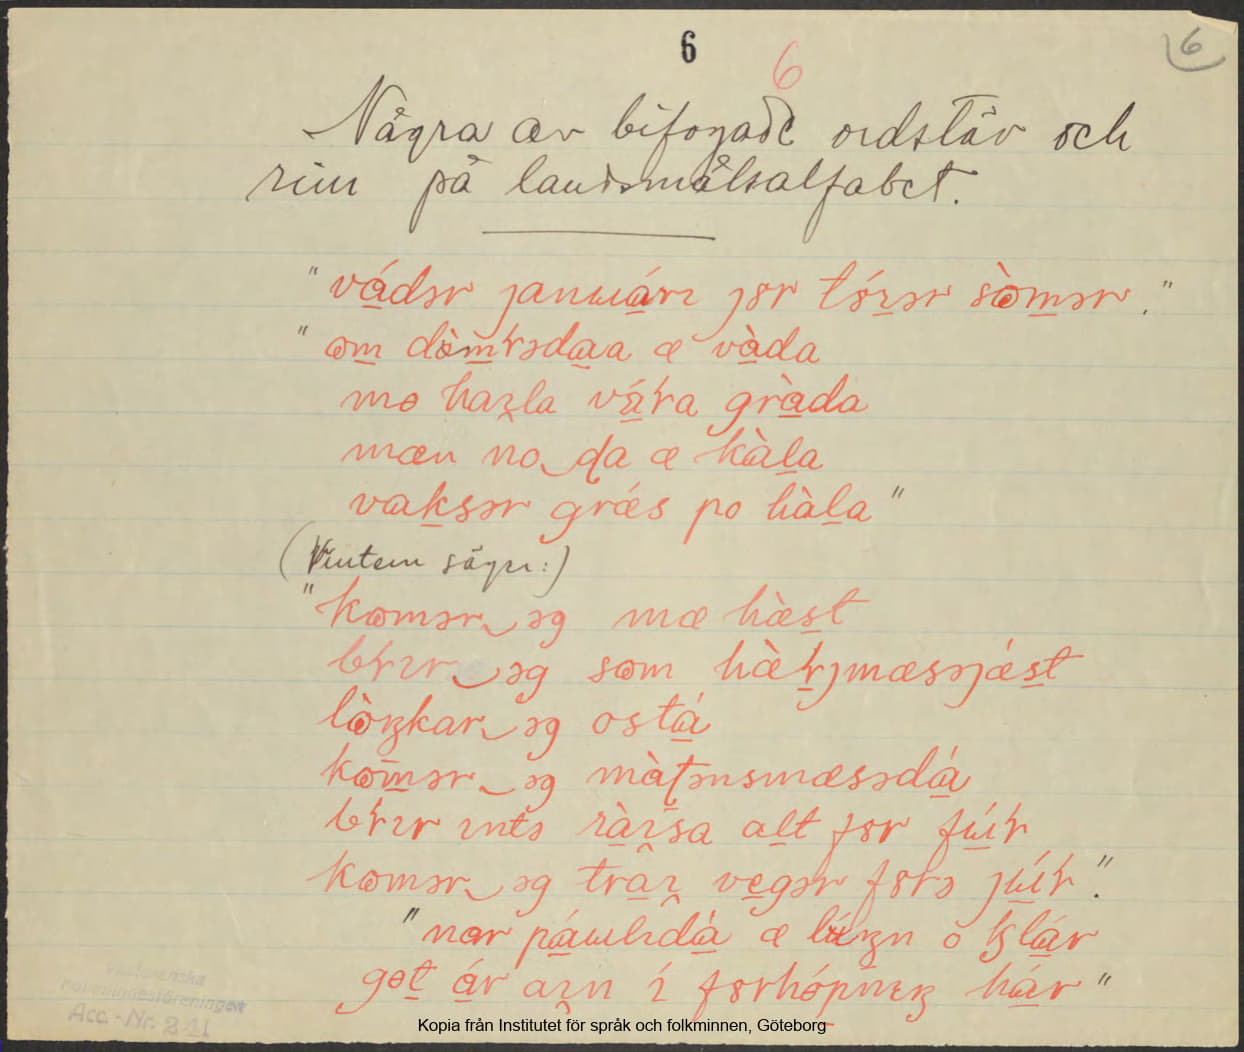 6 6 6
Några av bifogade ordstäv och
rim på landsmålsalfabet.
"vádər januári jør tórɪər sòmər."
"om dòmɽədaa æ vàda
mo haɪla vára gràda
mæn no da æ kàla
vaksər græs po hàla"
(Vintern säger:)
"komər əg mæ hæst
bɽɪr əg som hæɽjmæsəjæst
lòŋkar əg ostá
komər əg màʈənsmæsədá
bɽɪr ɪntə ràɪsa alt før fúɪɽ
komər əg traɪ vegər førə júɪɽ."
"nar páuldá æ lúŋn o klár
got ár aɪn í førhópnɪŋ hár"
Västsvenska
folkminnesföreningen
Acc.-Nr. 211
Kopia från Institutet för språk och folkminnen, Göteborg